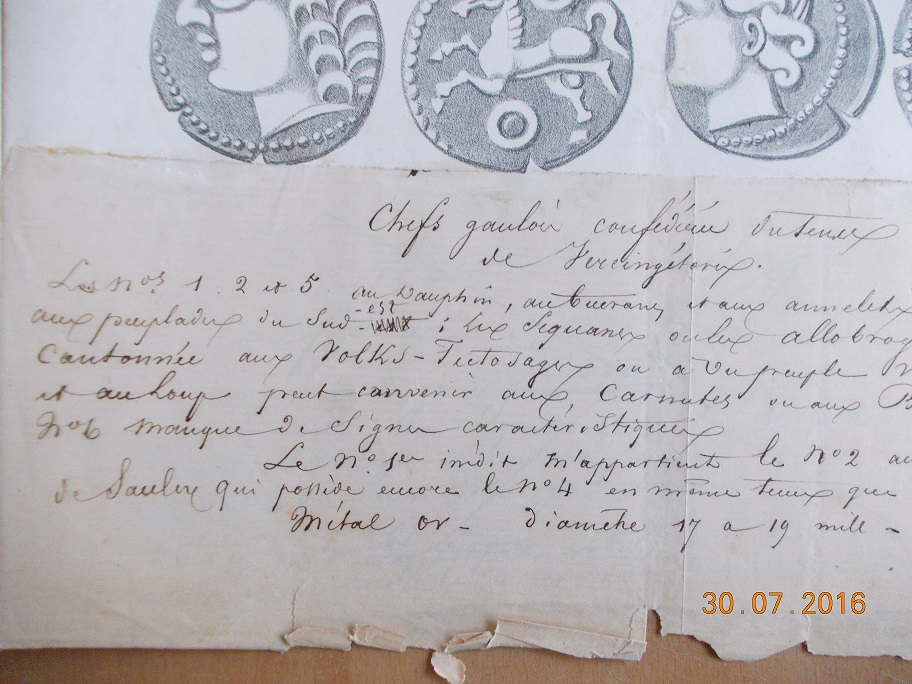 Chefs gaulois confédérés du temps
de Vercingétorix.
Les Nos 1. 2 et 5 au Dauphin, au et aux annelets
aux peuplades du Sud-est ; les Sequanes ou les allobrog
Cantonnée aux Volks-Tectosages ou à un peuple
et au loup peut convenir aux Carnutes ou aux B
No 6 manque de Signes caractéristiques
Le No 1er inédit m'appartient le No 2 au
de Saulcy qui possède encore le No 4 en même temps que
Métal or - diamètre 17 a 19 mill -
30.07.2016